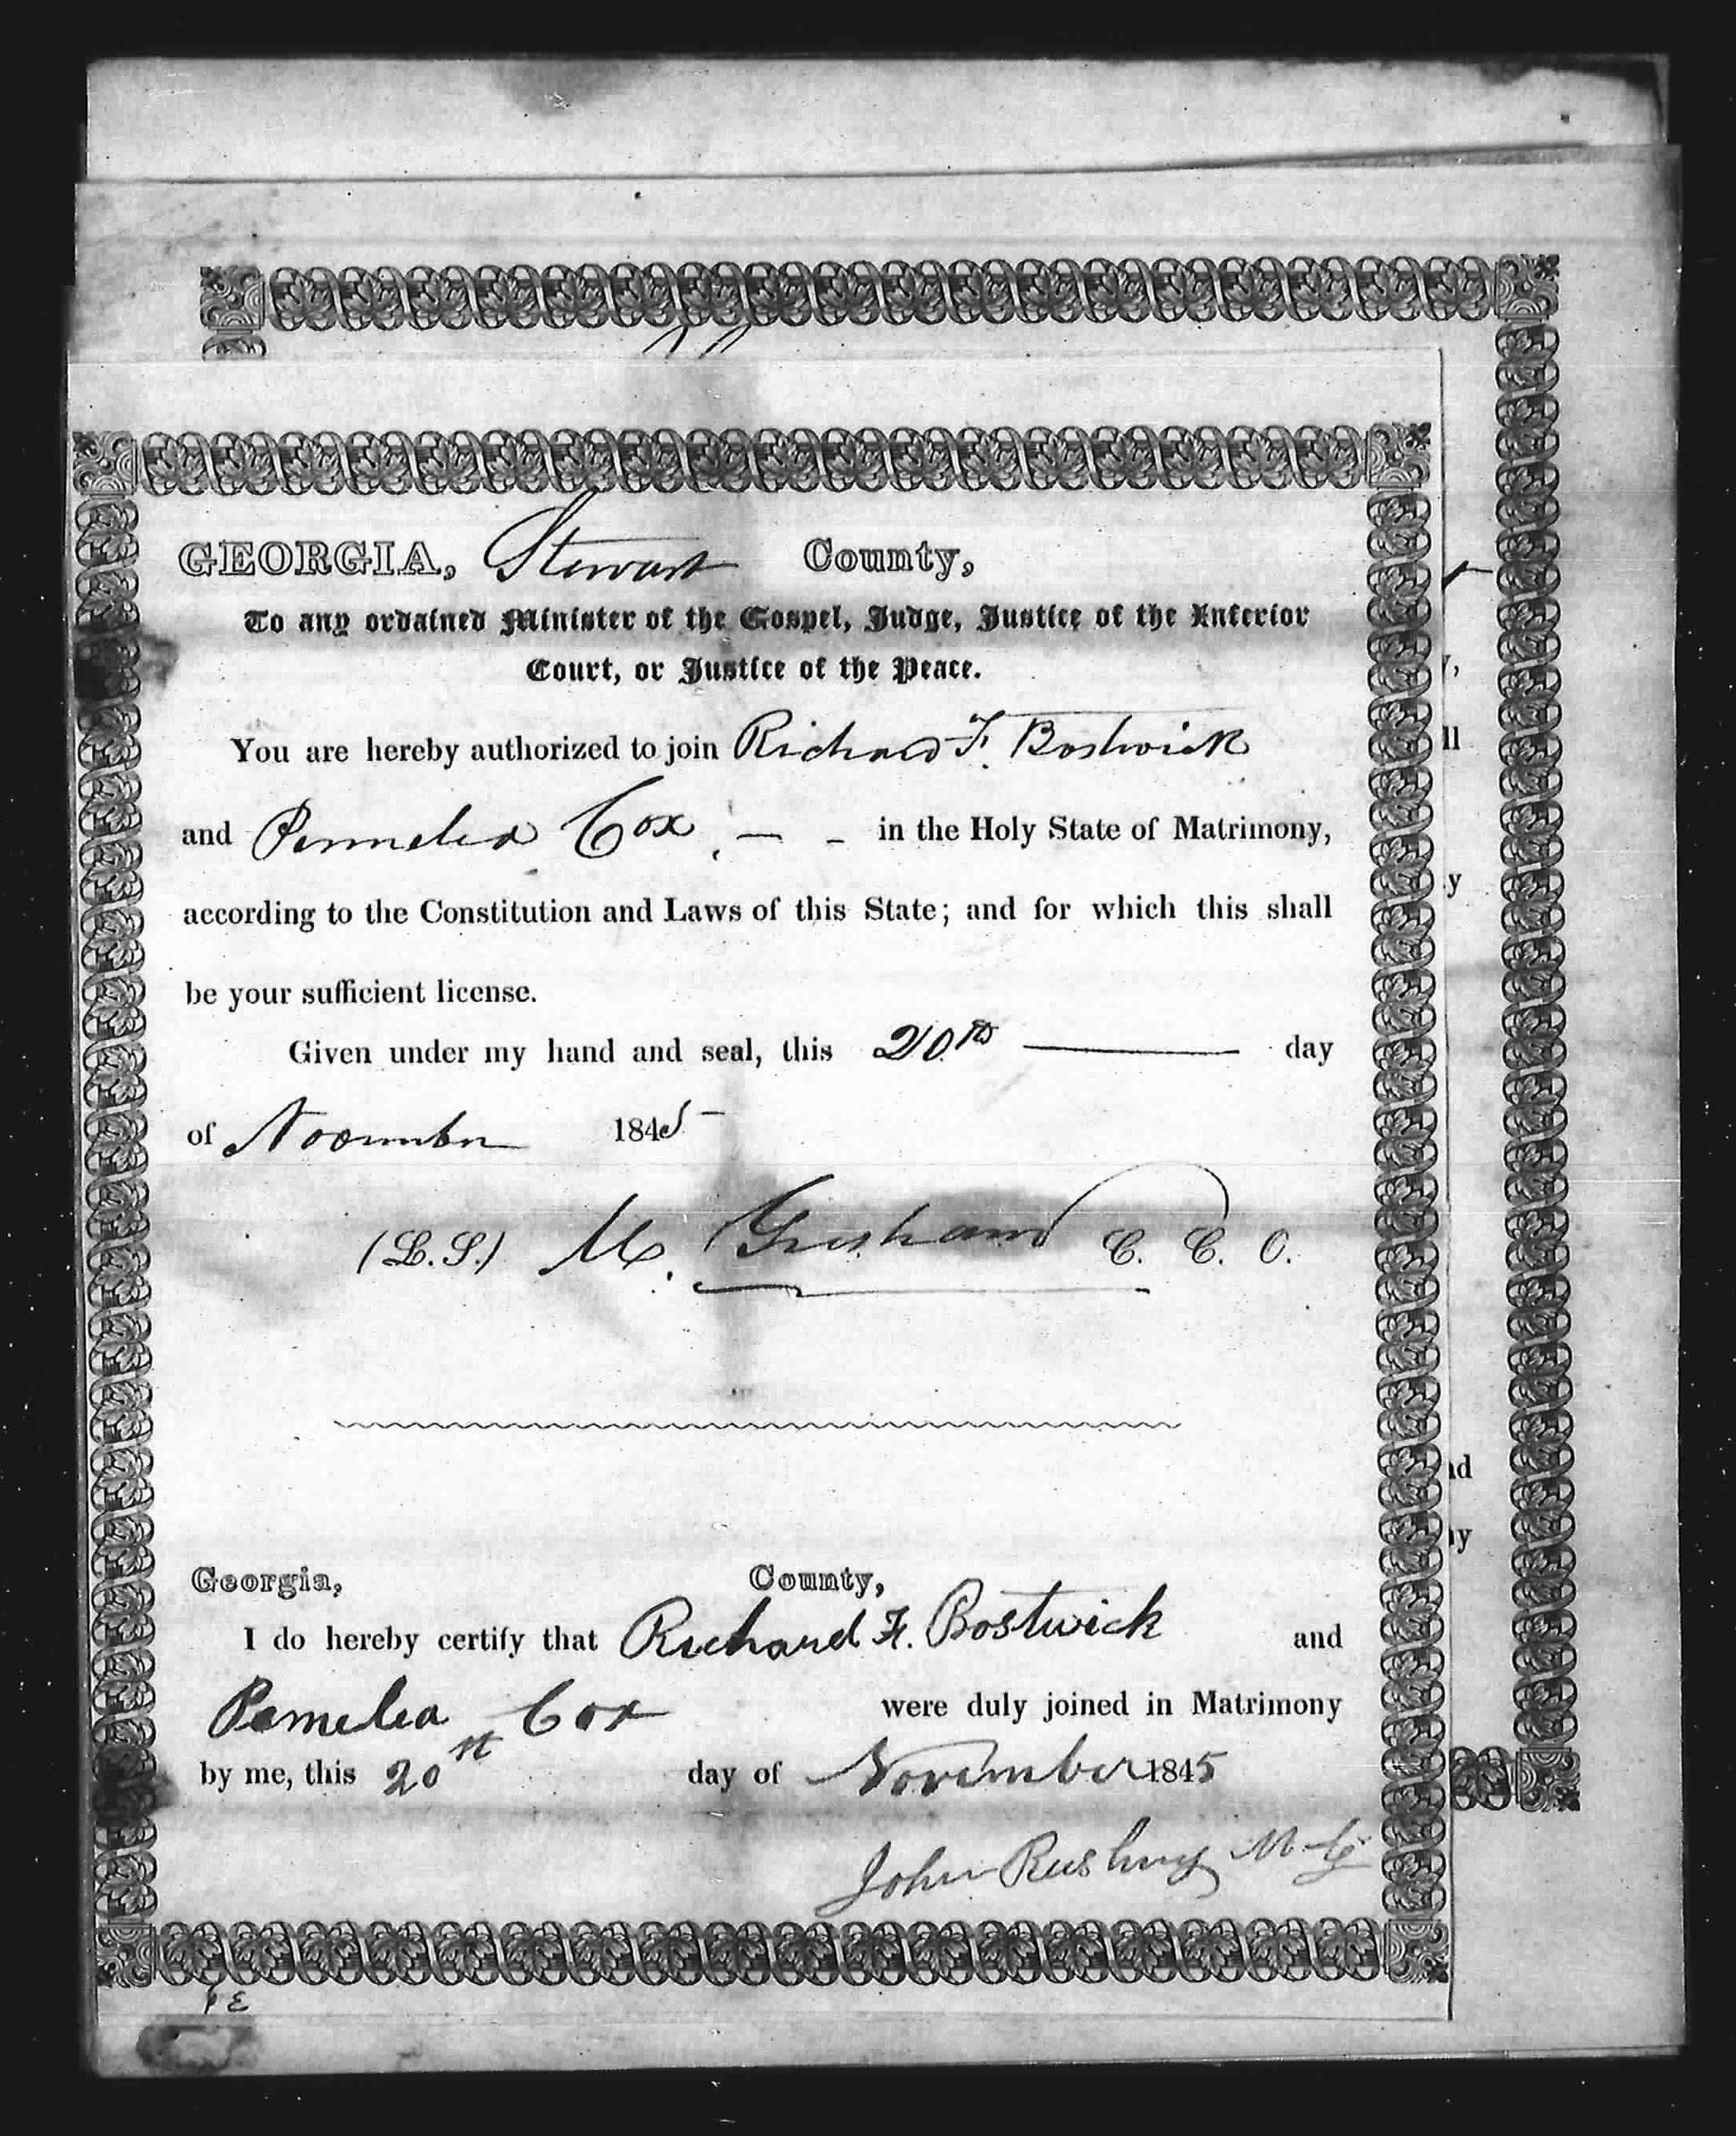 GEORGIA, Stewart County,
To any ordained Minister of the Gospel, Judge, Justice of the Inferior
Court, or Justice of the Peace.
You are hereby authorized to join Richard F. Bostwick
and Permelia Cox, — - in the Holy State of Matrimony,
according to the Constitution and Laws of this State; and for which this shall
be your sufficient license.
Given under my hand and seal, this 20th — day
of November 1845
(L.S.) M. Gresham C. C. O.
Georgia, County,
I do hereby certify that Richard F. Bostwick and
Pamelia Cox were duly joined in Matrimony
by me, this 20st day of November 1845
John M.G.